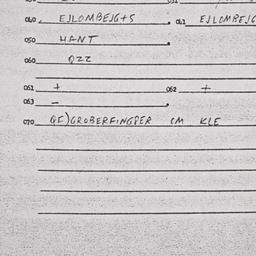 040 EJLOMBEJG+S 041 EJLOMBEJG
050 HANT
060 OZZ
061 + 062 +
063 -
070 GF)GROBERFINGPER CM KLE